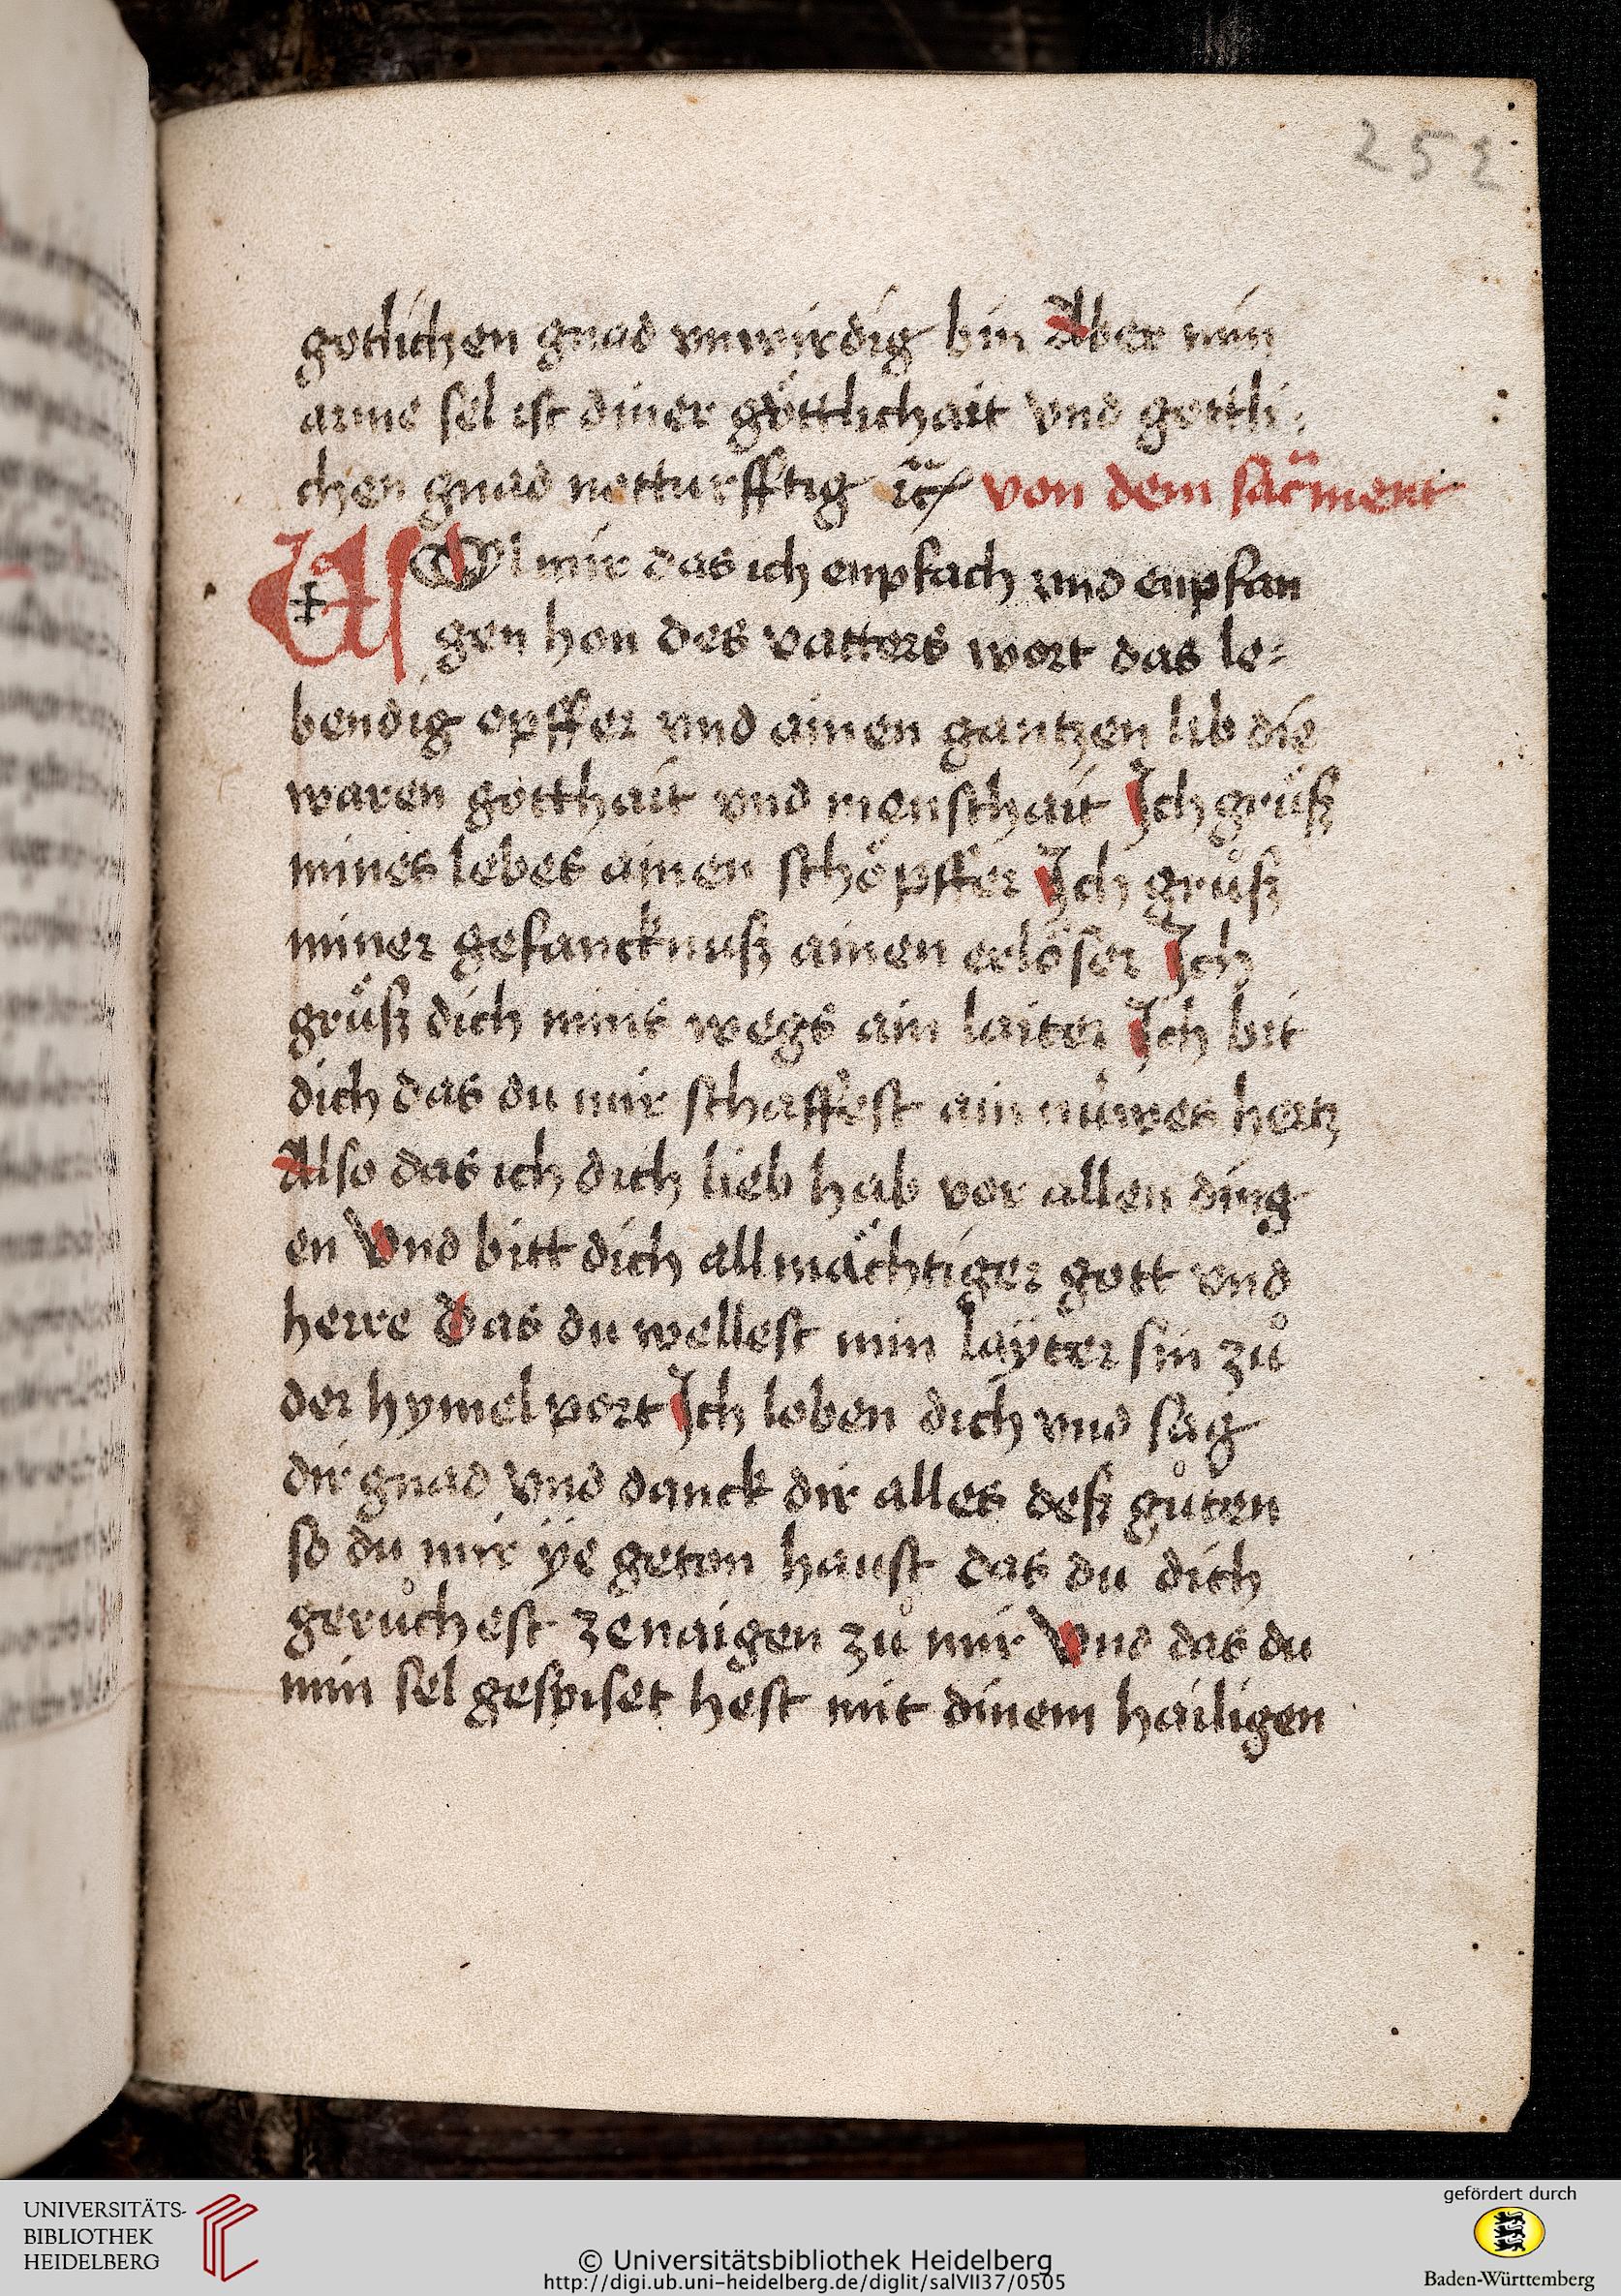 252
gotlichen gnad vnwirdig bin Aber min
arme sel ist diner göttlichait vnd gottli⸗
chen gnad notturfftig ꝛc̈ von dem sacr̈ment
Wol mir das ich enpfach vnd enpfan
gen hon des vatters wort das le⸗
bendig opffer vnd ainen gantzen lib die
waren gotthait vnd menschait Ich grüß
mines lebes ainen schöpffer Ich grůß
miner gefancknuß ainen erlöser Ich
grüß dich mins wegs ain laiter Ich bit
dich das du mir schaffest ain nüwes hertz
Also das ich dich lieb hab vor allen ding
en Vnd bitt dich allmächtiger gott vnd
herre Das du wellest min laÿter sin zů
der hymel port Ich loben dich vnd sag
dir gnad vnd danck dir alles deß gůten
so du mir ÿe geton haust das du dich
gerůchest zenaigen zů mir Vnd das du
min sel gespiset hest mit dinem hailigen
UNIVERSITÄTS-
BIBLIOTHEK
HEIDELBERG
© Universitätsbibliothek Heidelberg
http://digi.ub.uni-heidelberg.de/diglit/salVII37/0505
gefördert durch
Baden-Württemberg